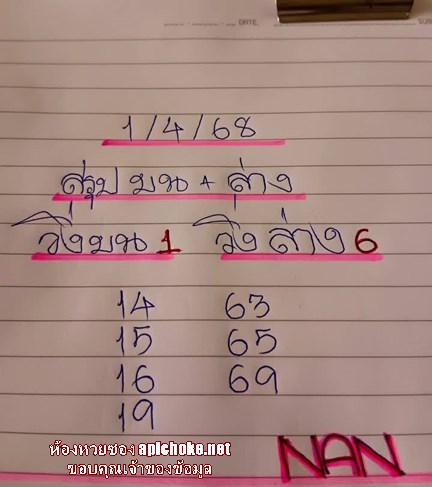 DATE
1/4/68
สรุป บน + ล่าง
วิ่งบน 1 วิ่งล่าง 6
14 63
15 65
16 69
19
ห้องหวยซอง apichoke.net
ขอบคุณเจ้าของข้อมูล
NAN